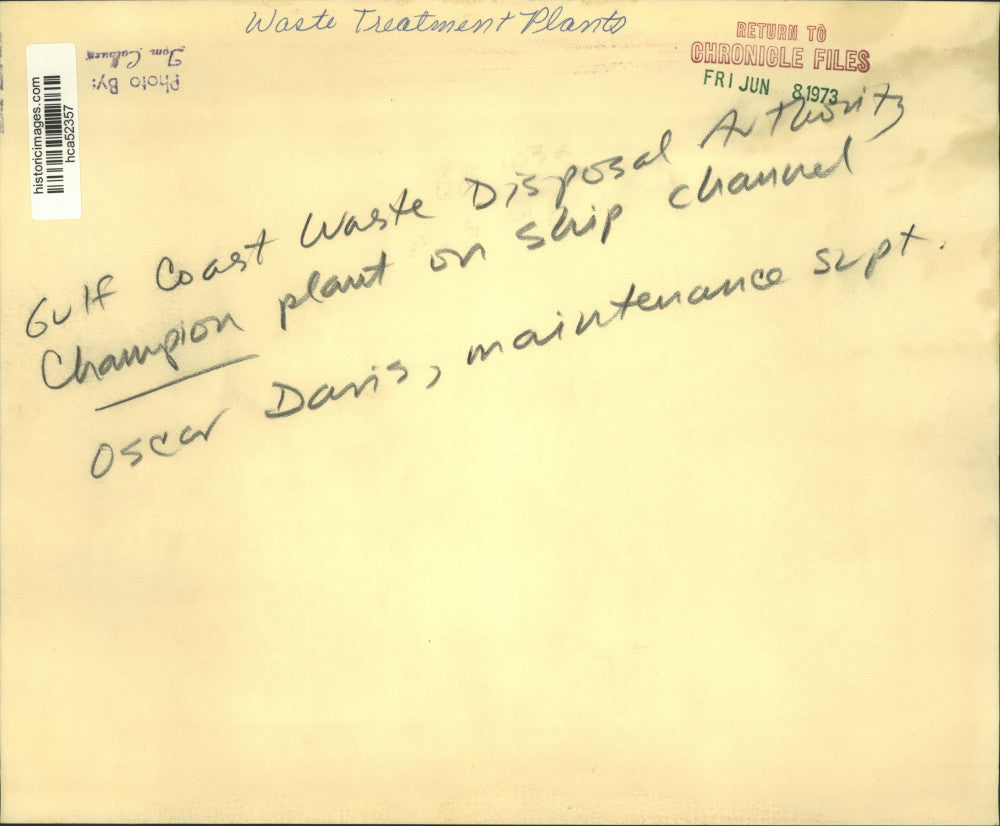 Waste Treatment Plants
RETURN TO
CHRONICLE FILES
FRI JUN 8 1973
Photo By:
Tom
historicimages.com
hca52357
Gulf Coast Waste Disposal Authority
Champion plant on ship channel
Oscar Davis, maintenance supt.